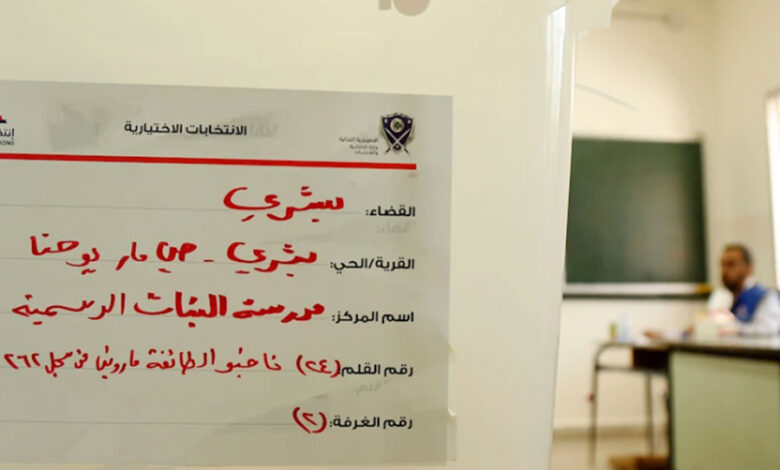 الجمهورية اللبنانية
وزارة الداخلية
والبلديات
الانتخابات الاختيارية
القضاء: بشري
القرية/الحي: بشري - حي مار يوحنا
اسم المركز: مدرسة البنات الرسمية
رقم القلم: (٢٤) ناخبو الطائفة مارونيا من سجل ٢٦٢
رقم الغرفة: (٢)